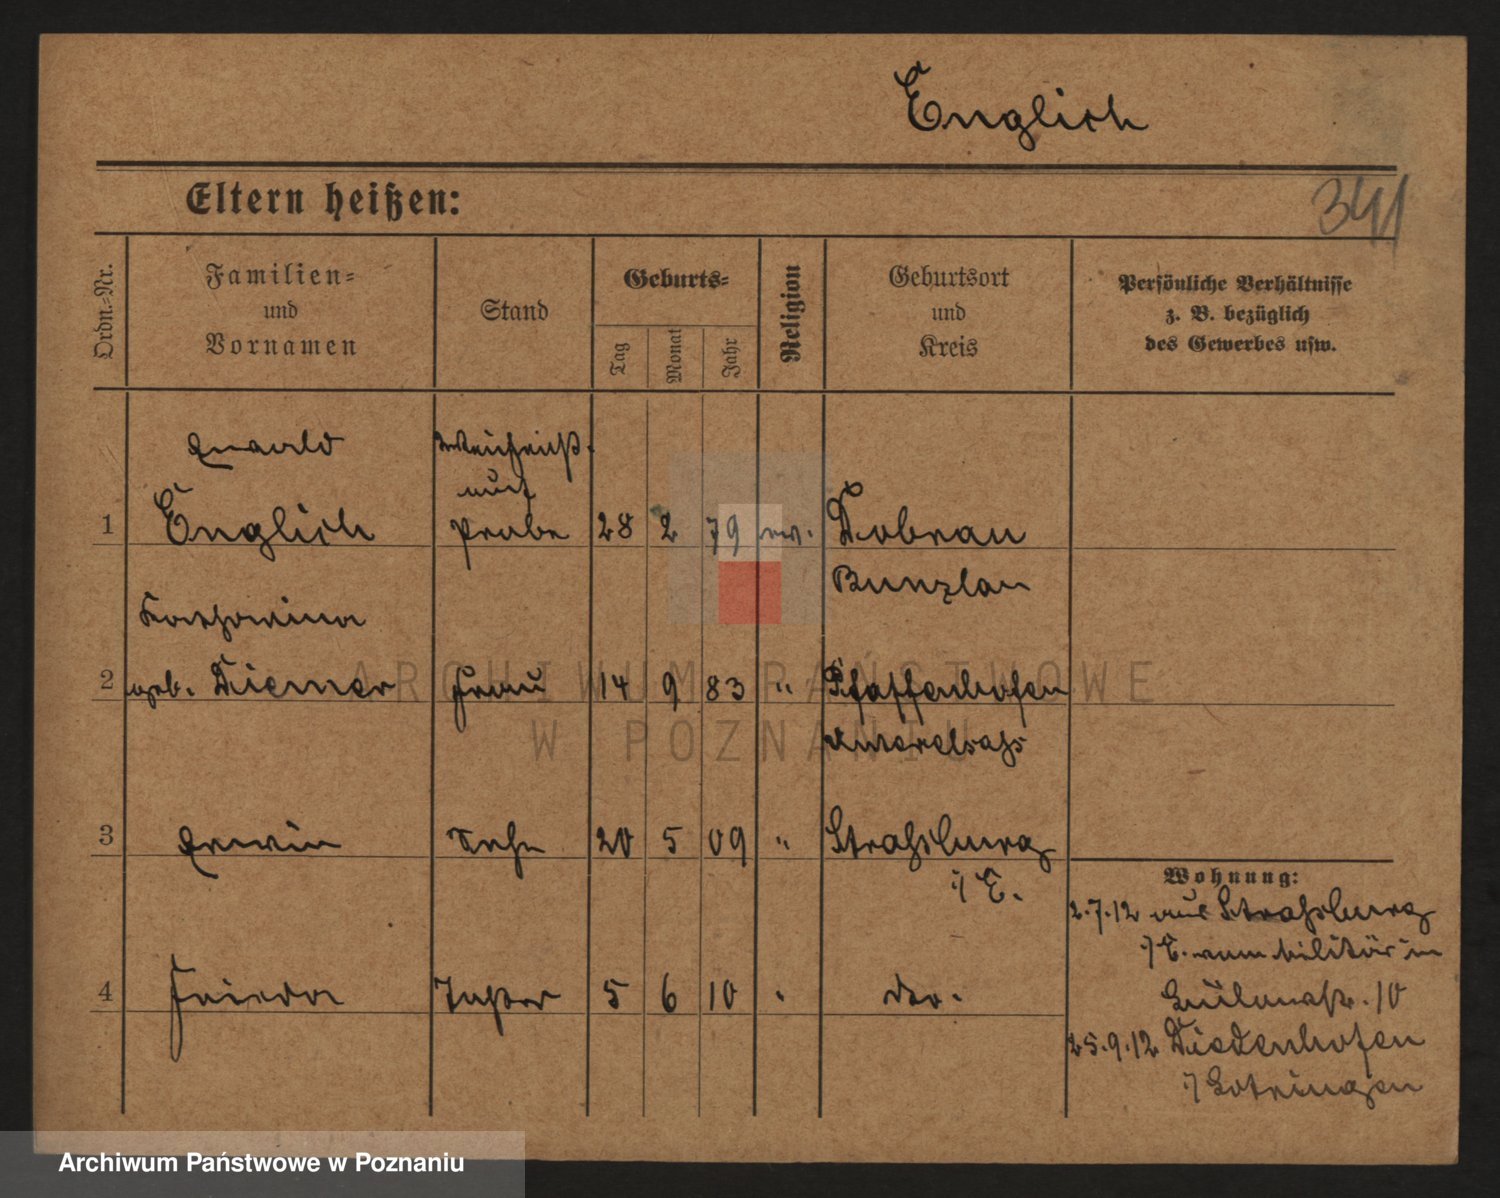 Englich
Eltern heißen:
341
Ordn.-Nr.
Familien-
und
Vornamen
Stand
Geburts-
Tag
Monat
Jahr
Religion
Geburtsort
und
Kreis
Persönliche Verhältnisse
z. B. bezüglich
des Gewerbes usw.
Ewald
auf
1 Englich Probe 28 2 79 ev. Dobrau
Bunzlau
Katharina
2 geb. Diemer Frau 14 9 83 " Pfaffenhofen
Unterelsaß
3 Erwin Sohn 20 5 09 " Straßburg
i/E.
4 Frieda Tochter 5 6 10 " do.
Wohnung:
2.7.12 aus Straßburg
i/E. vom Militär in
10
25.9.12 Diedenhofen
i/Lotringen
ARCHIWUM PAŃSTWOWE
W POZNANIU
Archiwum Państwowe w Poznaniu